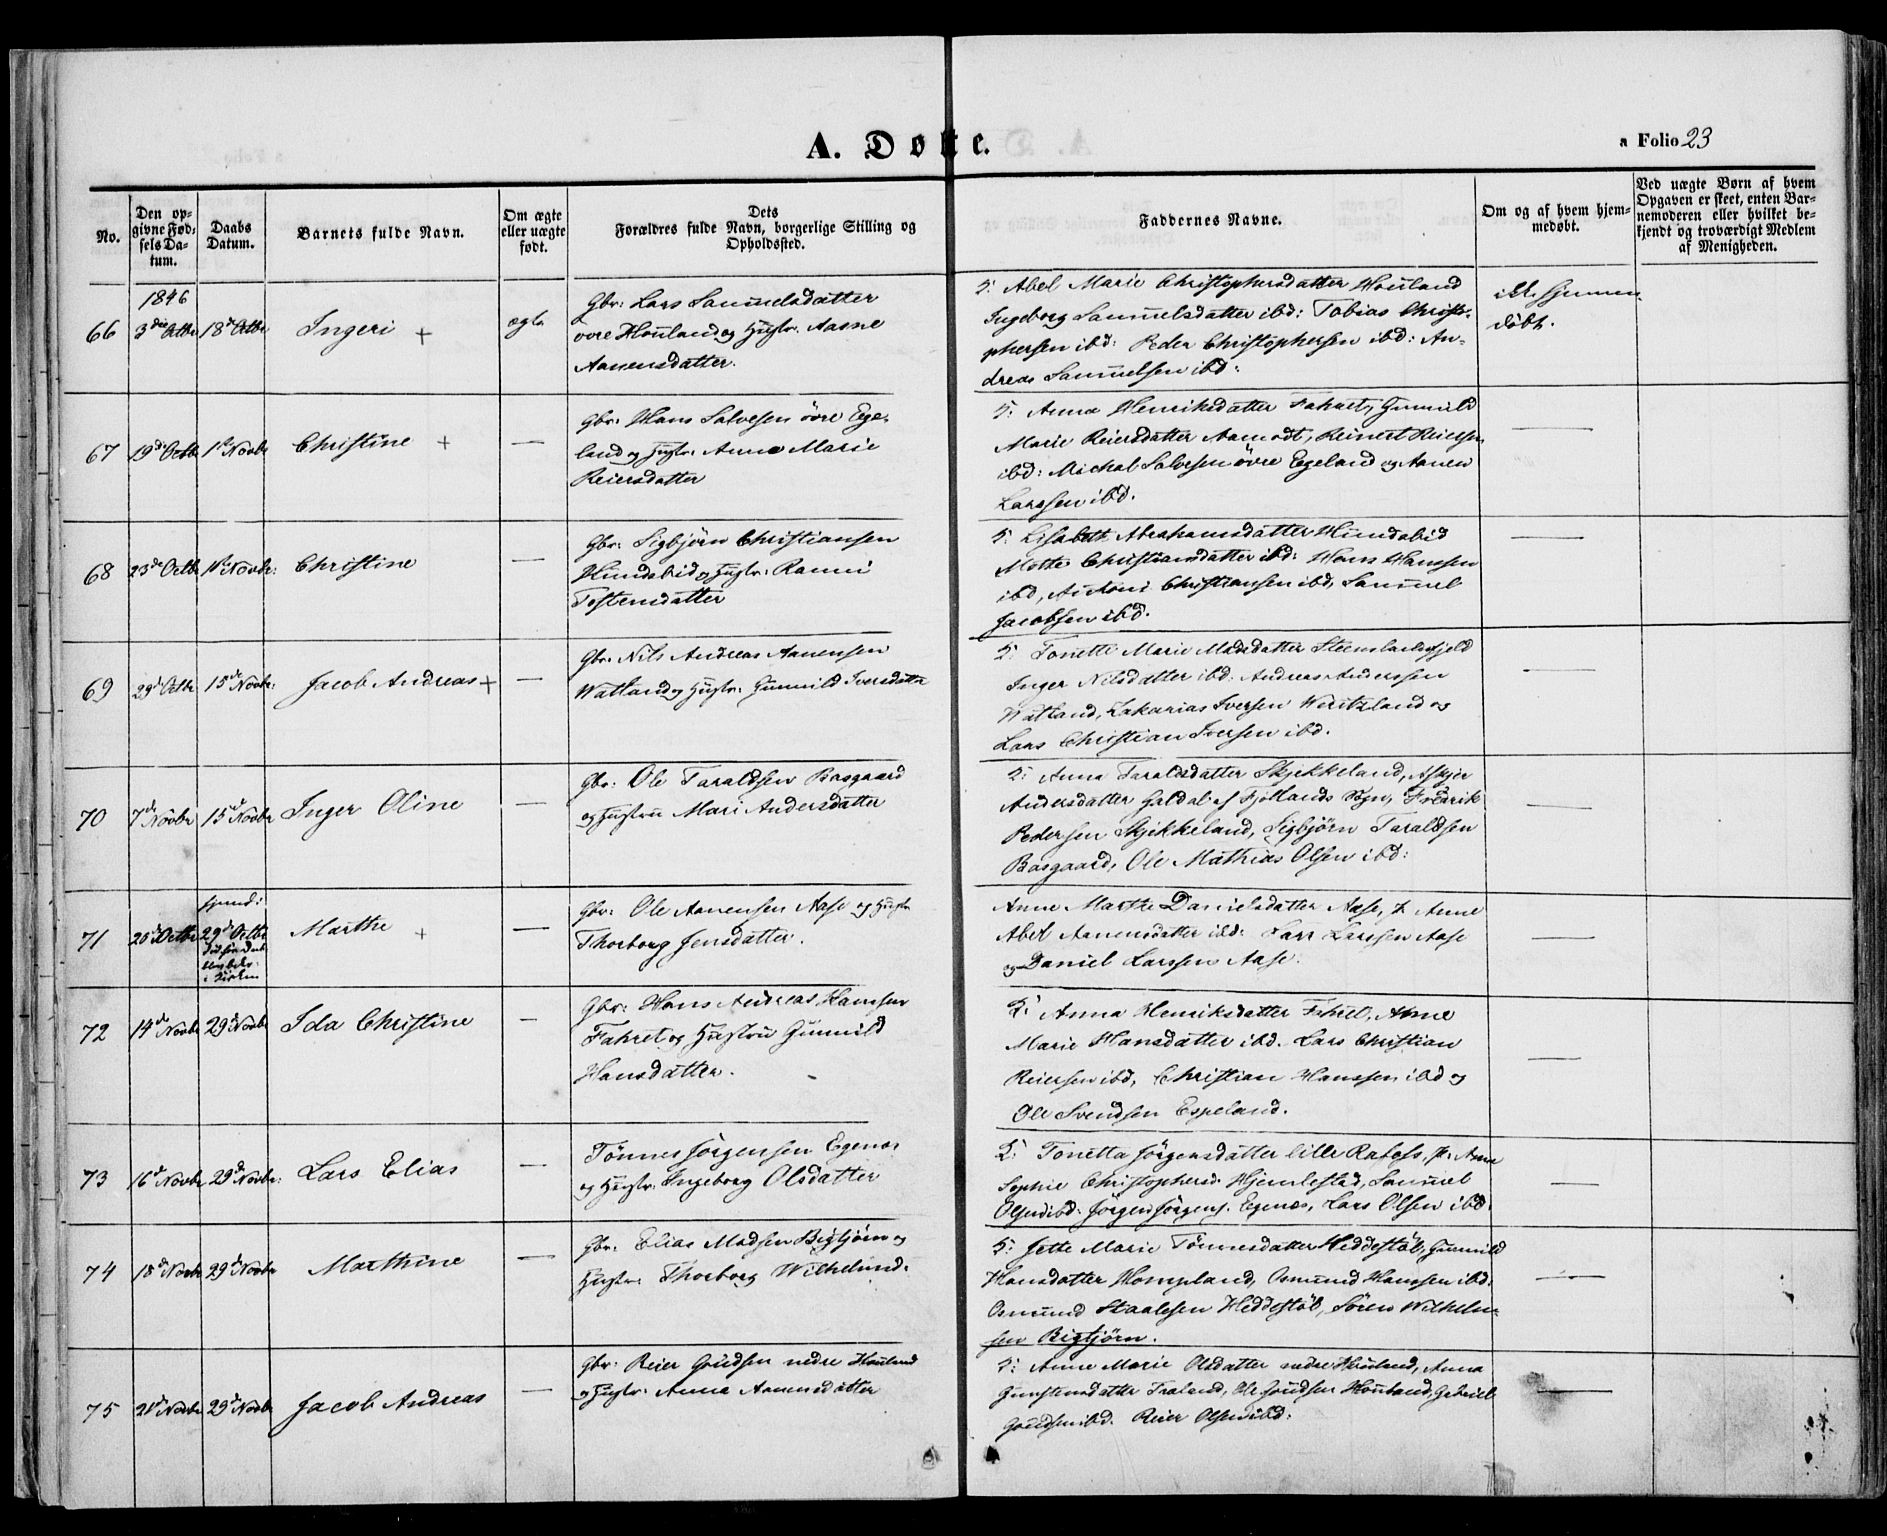 A. Døbte.
a Folio 23
No.
Den op-
givne Fød-
sels Da-
tum.
Daabs
Datum.
Barnets fulde Navn.
Om ægte
eller uægte
født.
Dets
Forældres fulde Navn, borgerlige Stilling og
Opholdssted.
Faddernes Navne.
Om og af hvem hjem-
medøbt.
Ved uægte Børn af hvem
Opgaven er skeet, enten Bar-
nemoderen eller hvilket be-
kjendt og troværdigt Medlem
af Menigheden.
1846
66 3die Octbr 18de Octbr Ingeri + ægte
Gbr: Lars Samuelsdatter
øvre Houland og Hustr: Aasne
Aanensdatter.
5: Abel Marie Christophersdatter Houland
Ingeborg Samuelsdatter ibd: Tobias Christo-
phersen ibd: Peder Christophersen ibd: An-
dreas Samuelsen ibd:
ikke hjemme
døbt.
67 19de Octbr 1ste Novbr Christine + —
Gbr: Hans Salvesen øvre Ege-
land og Hustr: Anna Marie
Reiersdatter
5: Anna Henriksdatter Fahret, Gunnild
Marie Reiersdatter Aamodt, Reinert Reiersen
ibd: Michal Salvesen øvre Egeland og Aanen
Larssen ibd.
—
68 23de Octbr 1ste Novbr: Christine —
Gbr: Sigbjørn Christiansen
Hundsbid og Hustr: Ranni
Tostensdatter
5: Lisabeth Abrahamsdatter Hundsbid
Motte Christiansdatter ibd: Hans Hanssen
ibd, Antoni Christiansen ibd, Samuel
Jacobsen ibd.
—
69 29de Octbr 15de Novbr: Jacob Andreas + —
Gbr: Nils Andreas Aanensen
Watland og Hustr: Gunnild Iversdatter
5: Tonette Marie Madsdatter Steenslandsfjeld
Inger Nilsdatter ibd: Andreas Anderssen
Watland, Zakarias Iversen Weritzland og
Lars Christian Iversen ibd.
—
70 7de Novbr 15de Novbr Inger Oline —
Gbr: Ole Taraldsen Basgaard
og Hustru Mari Andersdatter
5: Anna Taraldsdatter Skjekkeland, Askjer
Andersdatter Galdal af Fjotlands Sogn, Fredrik
Pedersen Skjekkeland, Sigbjørn Taraldsen
Basgaard, Ole Mathias Olsen ibd:
—
hjemd:
71 26de Octbr 29de Octbr
i Kirken
Marthe + —
Gbr: Ole Aanensen Aase og Hustr
Thorborg Jensdatter.
Anne Marthe Danielsdatter Aase, p. Anne
Abel Aanensdatter ibd: Lars Larssen Aase
og Daniel Larssen Aase.
—
72 14de Novbr 29de Novbr Ida Christine —
Gbr: Hans Andreas Hanssen
Fahret og Hustru Gunnild
Hansdatter.
5: Anna Henriksdatter Fahret, Anne
Marie Hansdatter ibd. Lars Christian
Reiersen ibd, Christian Hanssen ibd og
Ole Svendsen Espeland.
—
73 16de Novbr 29de Novbr: Lars Elias —
Tønnes Jørgensen Egenæs
og Hustr: Ingeborg Olsdatter
5: Tonetta Jørgensdatter lille Rafoss, p. Anna
Sophie Christophersd. Hjemlestad, Samuel
Olsen ibd: Jørgen Jørgens. Egenæs, Lars Olsen ibd.
—
74 18de Novbr 29de Novbr Marthine —
Gbr: Elias Madsen Bigtjørn og
Hustr: Thorborg Wilhelmsd.
5: Jette Marie Tønnesdatter Heddestøl, Gunnild
Hansdatter Hompland, Osmund Hanssen ibd:
Osmund Staalesen Heddestøl, Søren Wilhelm-
sen Bigtjørn.
—
75 21de Novbr 29de Novbr Jacob Andreas —
Gbr: Reier Gudsen nedre Houland
og Hustr: Anna Aanensdatter
5: Anne Marie Olsdatter nedre Houland, Anna
Gunstensdatter Traland, Ole Gudsen Houland, Gabriel
Gudsen ibd. Reier Olsen ibd:
—